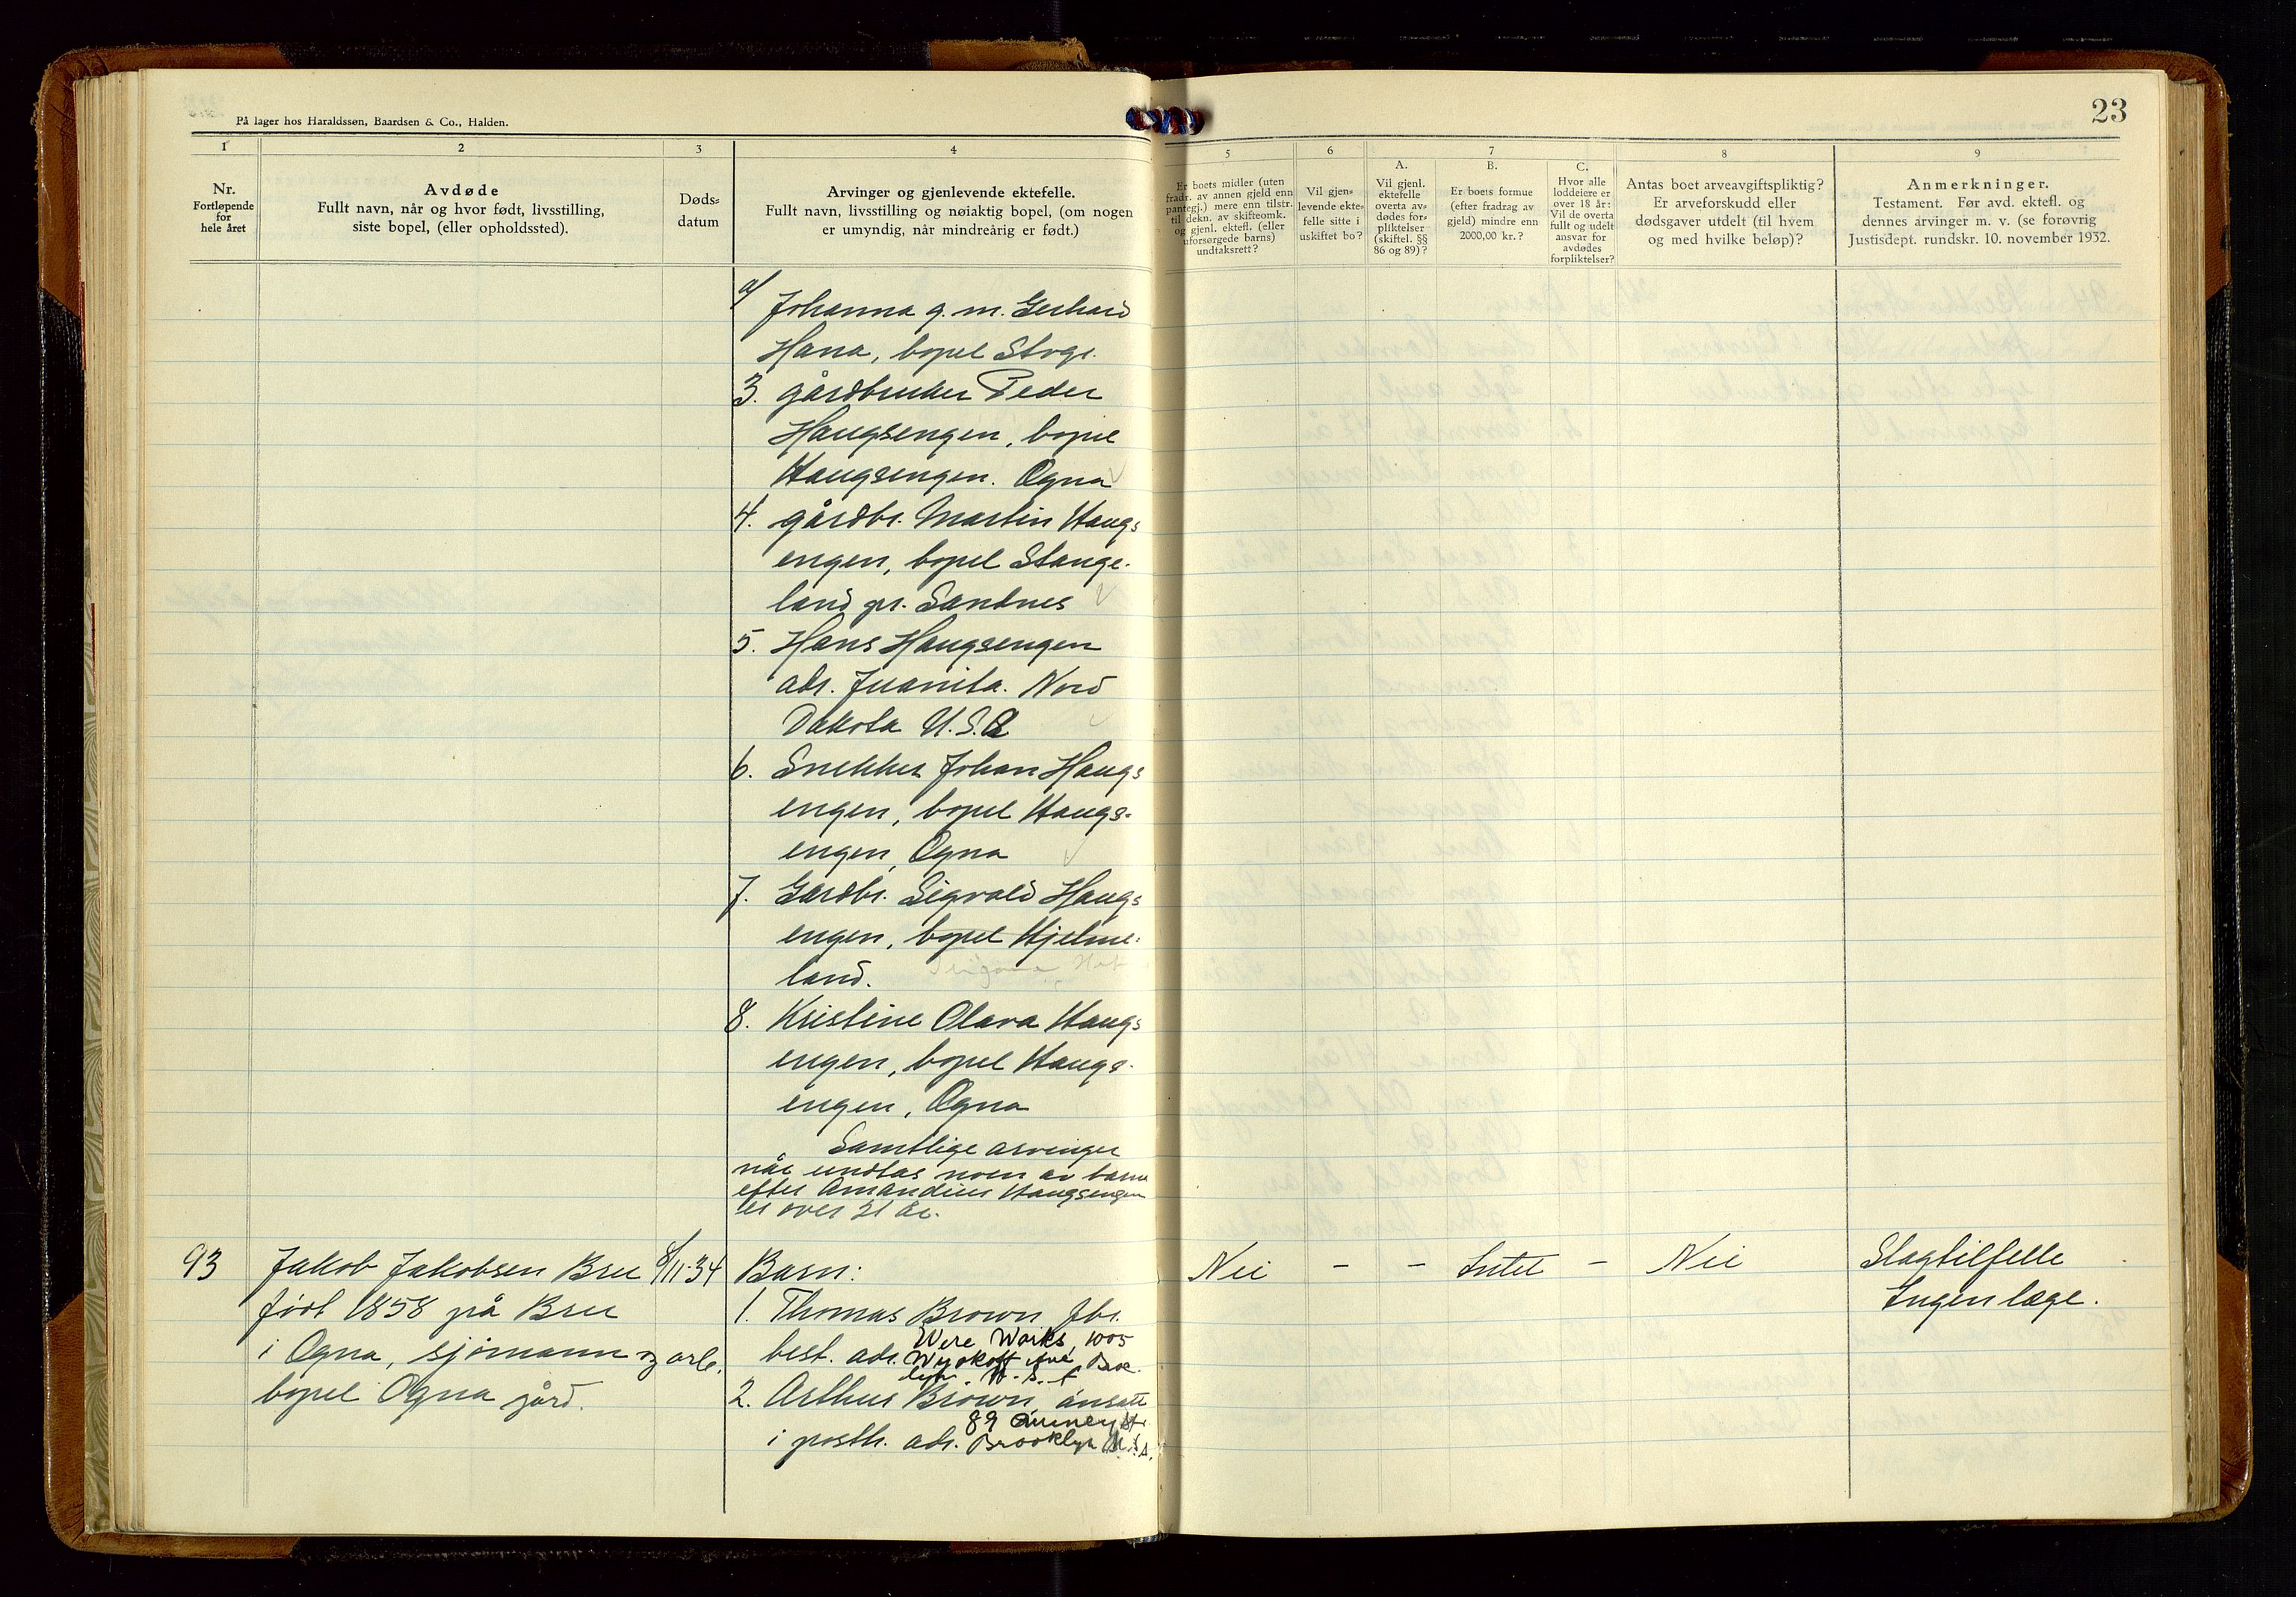 På lager hos Haraldssøn, Baardsen & Co., Halden.
23
1
2
3
4
5
6
7
8
9
Nr.
Fortløpende
for
hele året
Avdøde
Fullt navn, når og hvor født, livsstilling,
siste bopel, (eller opholdssted).
Døds-
datum
Arvinger og gjenlevende ektefelle.
Fullt navn, livsstilling og nøiaktig bopel, (om nogen
er umyndig, når mindreårig er født.)
Er boets midler (uten
fradr. av annen gjeld enn
pantegj.) mere enn tilstr.
til dekn. av skifteomk.
og gjenl. ektefl. (eller
uforsørgede barns)
undtaksrett?
Vil gjen-
levende ekte-
felle sitte i
uskiftet bo?
A.
Vil gjenl.
ektefelle
overta av-
dødes for-
pliktelser
(skiftel. §§
86 og 89)?
B.
Er boets formue
(efter fradrag av
gjeld) mindre enn
2000,00 kr.?
C.
Hvor alle
loddeiere er
over 18 år:
Vil de overta
fullt og udelt
ansvar for
avdødes
forpliktelser?
Antas boet arveavgiftspliktig?
Er arveforskudd eller
dødsgaver utdelt (til hvem
og med hvilke beløp)?
Anmerkninger.
Testament. Før avd. ektefl. og
dennes arvinger m. v. (se forøvrig
Justisdept. rundskr. 10. november 1932.
Johanna g. m. Gerhard
Hana, bopel Stvgr.
3. gårdbruker Peder
Haugsengen, bopel
Haugsengen. Ogna
4. gårdbr. Martin Haugs
engen, bopel Stange-
land pr. Sandnes
5. Hans Haugsengen
adr. Juanita. Nord
Dakota U.S.A
6. Snekker Johan Haugs
engen, bopel Haugs-
engen, Ogna
7. Gardbr. Sigvald Haugs
engen, bopel Hjelme-
land.
8. Kristine Olava Haugs
engen, bopel Haugs-
engen, Ogna
Samtlige arvinger
når undtas noen av barna
efter Amandius Haugsengen
er over 21 år.
93
Jakob Jakobsen Bru
født 1858 på Bru
i Ogna, sjømann og arb.
bopel Ogna gård.
8/11-34
Barn:
1. Thomas Brown, fbr.
best. adr. Were Works, 1005
Wyckoff Ave
2. Arthur Brown, ansatt
i posth. adr. 89 Quincy St.
Brooklyn U.S.A.
Nei
-
-
Intet
-
Nei
Slagtilfelle
Ingen læge.